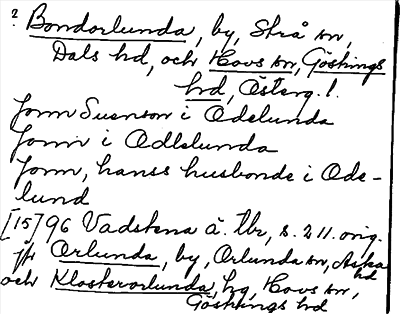 ? Bondorlunda, by, Strå sn,
Dals hd, och Hovs sn, Göstrings
hd, Österg. l.
Jorm Suenson i Odelunda
Jorm i Odlelunda
Jorm, hanss husbonde i Ode-
lund
[15]96 Vadstena ä. tbr, s. 211. orig.
jfr Orlunda, by, Orlunda sn, Aska hd
och Klosterorlunda, hg, Hovs sn,
Göstrings hd